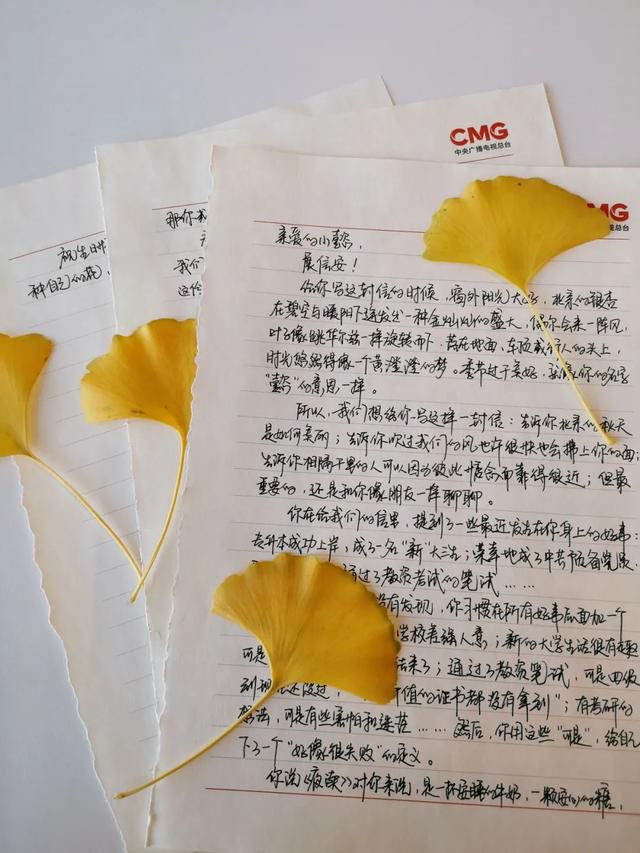 CMG
中央广播电视总台
MG
祝生日快
种自己的花
那你我
我们
这份
亲爱的小懿,
展信安!
给你写这封信的时候,窗外阳光大好,北京的银杏
在碧空与暖阳下迸发出一种金灿灿的盛大,偶尔会来一阵风,
叶子像跳华尔兹一样旋转而下,落在地面、车顶或行人的头上,
时光悠然得像一个黄澄澄的梦。季节过于美好,就像你的名字
“懿”的意思一样。
所以,我们想给你写这样一封信:告诉你北京的秋天
是如何美丽;告诉你吹过我们的风也许很快也会拂上你的面;
告诉你相隔千里的人可以因为彼此惦念而靠得很近;但最
重要的,还是和你像朋友一样聊聊。
你在给我们的信里,提到了一些最近发生在你身上的好事:
专升本成功上岸,成了一名“新”大三生;荣幸地成了中共预备党员,
通过了教资考试的笔试……
有发现,你习惯在所有好事后面加一个
可是 学校差强人意;新的大学生活很有趣
结束了;通过了教资笔试,可是四级
到现在还没过, 价值的证书都没有拿到”;有考研的
想法,可是有些害怕和迷茫……然后,你用这些“可是”,给自己
下了一个“好像很失败”的定义。
你说《夜读》对你来说,是一杯安睡的牛奶,一颗安心的糖,